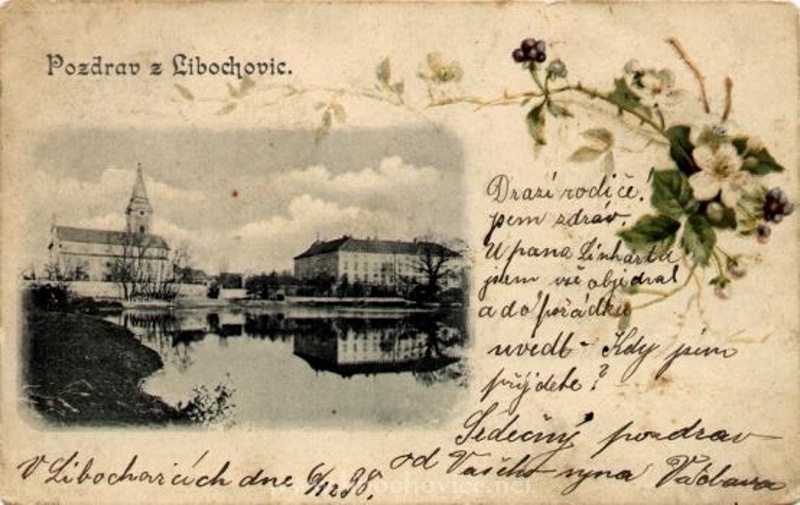 Pozdrav z Libochovic.
Drazí rodiče!
jsem zdráv.
U pana Linharta
jsem vše objednal
a do pořádku
uvedl - Kdy
přijdete?
Srdečný pozdrav
od Vašeho syna Václava
V Libochovicích dne 6/12 98.